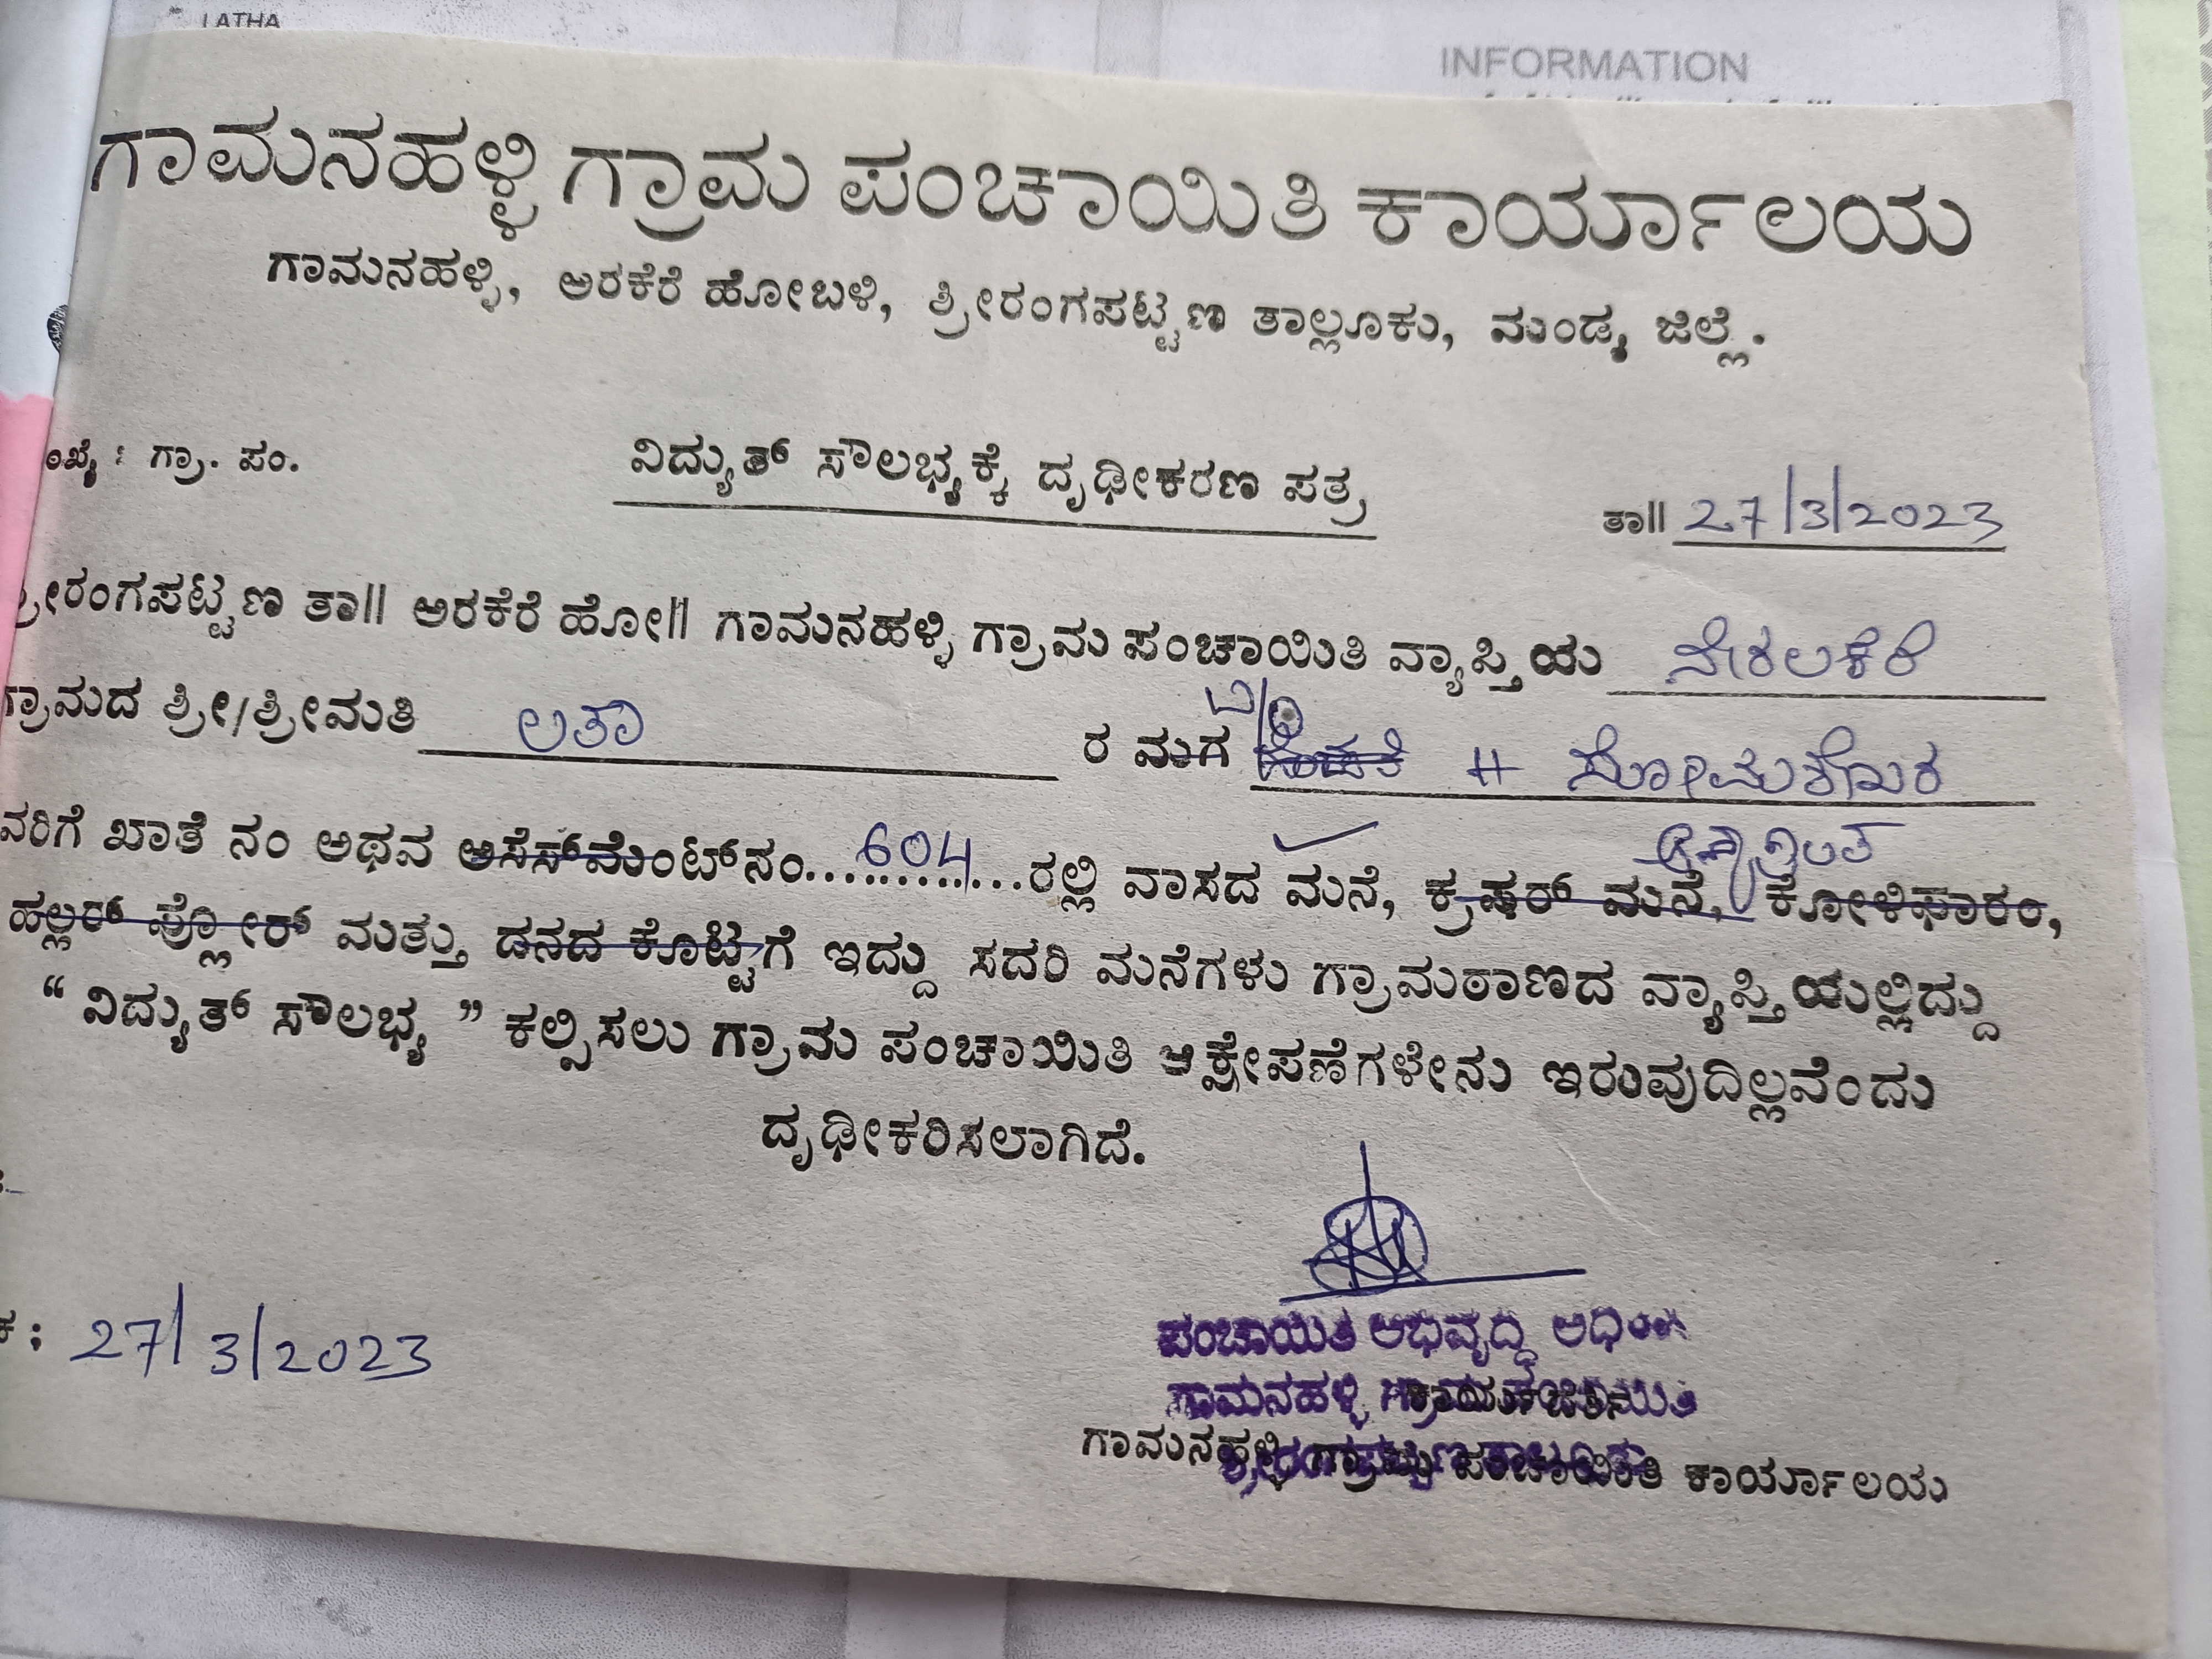 LATHA
INFORMATION
ಗಾಮನಹಳ್ಳಿ ಗ್ರಾಮ ಪಂಚಾಯಿತಿ ಕಾರ್ಯಾಲಯ
ಗಾಮನಹಳ್ಳಿ, ಅರಕೆರೆ ಹೋಬಳಿ, ಶ್ರೀರಂಗಪಟ್ಟಣ ತಾಲ್ಲೂಕು, ಮಂಡ್ಯ ಜಿಲ್ಲೆ.
ಂಖ್ಯೆ : ಗ್ರಾ. ಪಂ.
ವಿದ್ಯುತ್ ಸೌಲಭ್ಯಕ್ಕೆ ದೃಢೀಕರಣ ಪತ್ರ
ತಾ|| 27/3/2023
ಶ್ರೀರಂಗಪಟ್ಟಣ ತಾ|| ಅರಕೆರೆ ಹೋ|| ಗಾಮನಹಳ್ಳಿ ಗ್ರಾಮ ಪಂಚಾಯಿತಿ ವ್ಯಾಪ್ತಿಯ ನೇರಲಕೆರೆ
ಗ್ರಾಮದ ಶ್ರೀ/ಶ್ರೀಮತಿ ಲತಾ ರ ಮಗ ಸೋಮಶೇಖರ
ವರಿಗೆ ಖಾತೆ ನಂ ಅಥವ ಅಸೆಸ್‌ಮೆಂಟ್‌ನಂ....604....ರಲ್ಲಿ ವಾಸದ ಮನೆ, ಕ್ರಷರ್ ಮನೆ, ಕೋಳಿಫಾರಂ,
ಹಲ್ಲರ್ ಫ್ಲೋರ್ ಮತ್ತು ದನದ ಕೊಟ್ಟಿಗೆ ಇದ್ದು ಸದರಿ ಮನೆಗಳು ಗ್ರಾಮಠಾಣದ ವ್ಯಾಪ್ತಿಯಲ್ಲಿದ್ದು
“ ವಿದ್ಯುತ್ ಸೌಲಭ್ಯ ” ಕಲ್ಪಿಸಲು ಗ್ರಾಮ ಪಂಚಾಯಿತಿ ಆಕ್ಷೇಪಣೆಗಳೇನು ಇರುವುದಿಲ್ಲವೆಂದು
ದೃಢೀಕರಿಸಲಾಗಿದೆ.
: 27/3/2023
ಪಂಚಾಯಿತಿ ಅಭಿವೃದ್ಧಿ
ಗಾಮನಹಳ್ಳಿ
ಗಾಮನಹಳ್ಳಿ ಗ್ರಾಮ ಪಂಚಾಯಿತಿ ಕಾರ್ಯಾಲಯ